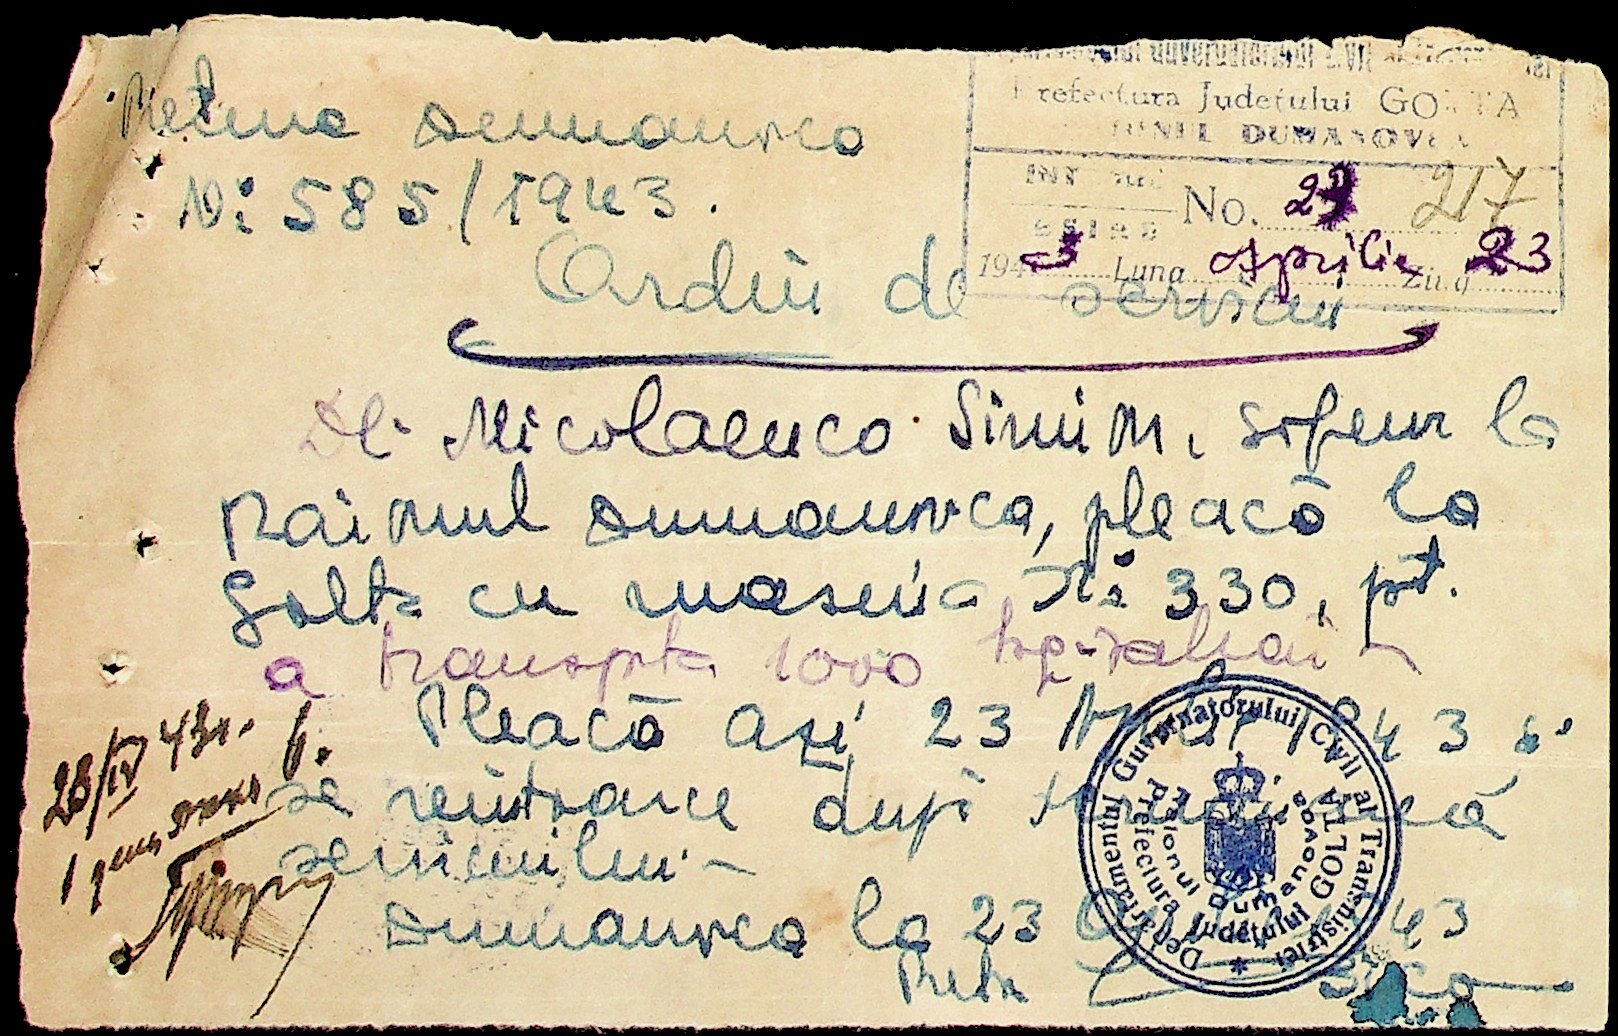 Pretura Dumanovca
No 585/1943.
Prefectura Județului GOLTA
RAIONUL DUMANOVCA
No. 29 217
IEȘIRE
1943 Luna Aprilie Ziua 23
Ordin de serviciu
Dl. Nicolaenco Simion, șofeur la
Raionul Dumanovca, pleacă la
Golta cu mașina No 330, pt.
a transporta 1000 kg.
Pleacă azi 23 Aprilie 1943 și
se reîntoarce după terminarea
serviciului.-
Dumanovca la 23 1943
Pretor
28/IV 43
Guvernatorului Civil al Transnistriei
Prefectura Județului GOLTA
Raionul Dumanovca